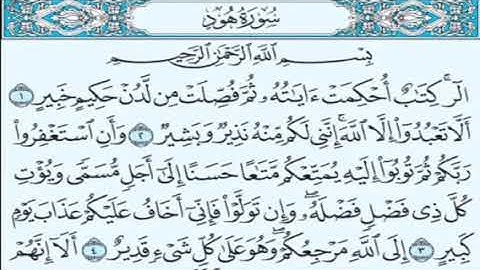 سُورَةُ هُودٍ
بِسْمِ ٱللَّهِ ٱلرَّحْمَٰنِ ٱلرَّحِيمِ
الٓر ۚ كِتَٰبٌ أُحْكِمَتْ ءَايَٰتُهُۥ ثُمَّ فُصِّلَتْ مِن لَّدُنْ حَكِيمٍ خَبِيرٍ ١
أَلَّا تَعْبُدُوٓا۟ إِلَّا ٱللَّهَ ۚ إِنَّنِى لَكُم مِّنْهُ نَذِيرٌ وَبَشِيرٌ ٢ وَأَنِ ٱسْتَغْفِرُوا۟
رَبَّكُمْ ثُمَّ تُوبُوٓا۟ إِلَيْهِ يُمَتِّعْكُم مَّتَٰعًا حَسَنًا إِلَىٰٓ أَجَلٍ مُّسَمًّى وَيُؤْتِ
كُلَّ ذِى فَضْلٍ فَضْلَهُۥ ۖ وَإِن تَوَلَّوْا۟ فَإِنِّىٓ أَخَافُ عَلَيْكُمْ عَذَابَ يَوْمٍ
كَبِيرٍ ٣ إِلَى ٱللَّهِ مَرْجِعُكُمْ ۖ وَهُوَ عَلَىٰ كُلِّ شَىْءٍ قَدِيرٌ ٤ أَلَآ إِنَّهُمْ